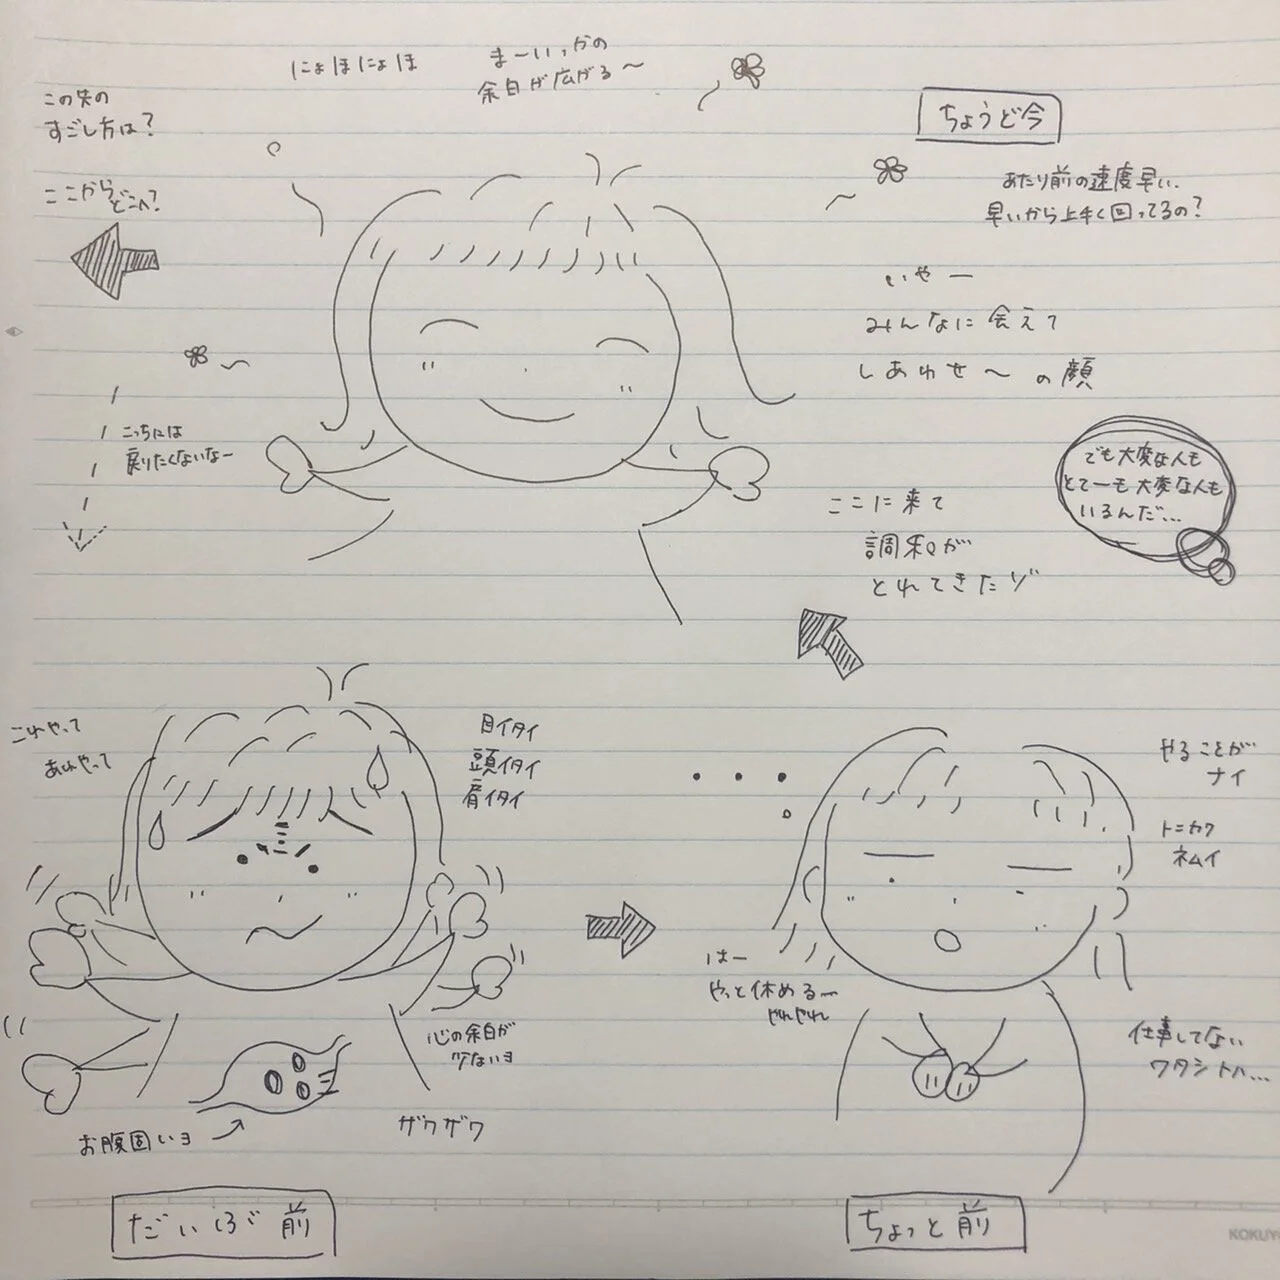 にょほにょほ
まーいっかの
余白が広がる〜
この先の
すごし方は?
ここから
どこへ?
こっちには
戻りたくないなー
ちょうど今
あたり前の速度早い、
早いから上手く回ってるの?
いやー
みんなに会えて
しあわせ〜の顔
でも大変な人も
とてーも大変な人も
いるんだ...
ここに来て
調和が
とれてきたゾ
これやって
あれやって
目イタイ
頭イタイ
肩イタイ
心の余白が
少ないヨ
お腹固いヨ
ザワザワ
だいぶ前
・・・
やることが
ナイ
トニカク
ネムイ
はー
やっと休めるー
やれやれ
仕事してない
ワタシトハ...
ちょっと前
KOKUYO